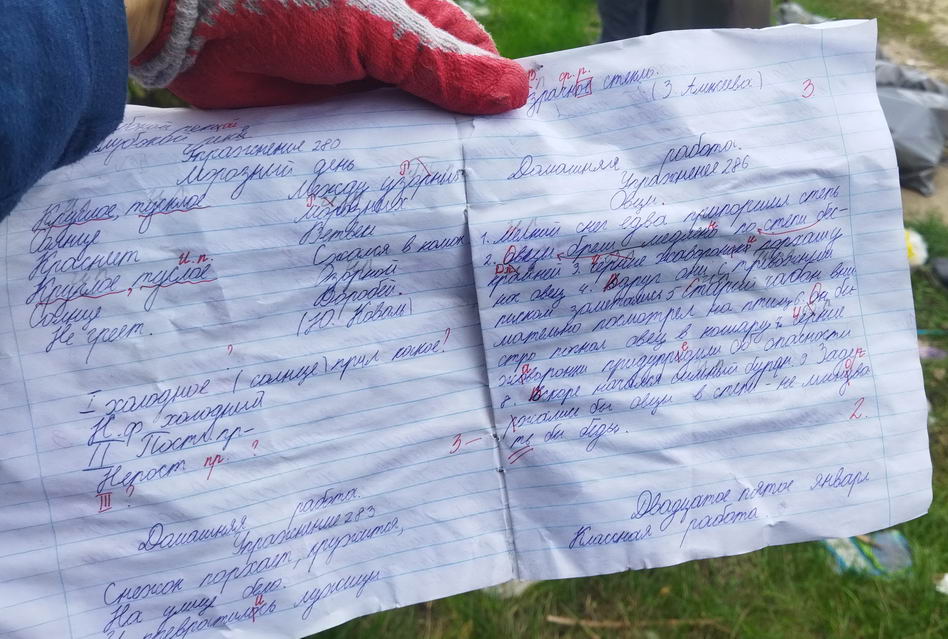 Упражнение 280
Морозный день
Круглое, тусклое
Солнце
Краснеет
и.п.
Круглое, туслое
Солнце
Не греет.
Между узорных
Морозных
Ветвей
Сжался в комок
Зоркой
Воробей.
(Ю. Коваль)
?
I холодное (солнце) прил какое?
Н.ф холодный
II Пост. пр-
Непост пр. ?
III ?
3-
Домашняя работа.
Упражнение 283
Снежок порхает, кружится,
На улице бело.
И превратились лужицы
ф. р.
зрачное стекло.
(З. Алексеева)
3
Домашняя работа.
Упражнение 286
Овцы.
1. Мелкий снег едва припорошил степь
2. Овцы брели медлено по степи бес-
крайней 3. Чёрние жаворонки порхашу
ник овец 4. Вдруг они с тревожным
писком заметались 5 Старший чабан вни
мательно посмотрел на птиц 6. Он бы
стро погнал овец в кошару 7. Чёрние
жаворонки придупредили об опасности
8. Вскоре начался сильный буран. 9 Заде
ржались бы овцы в степи - не миновать
бы беды.
2.
Двадцатое пятое января
Классная работа.